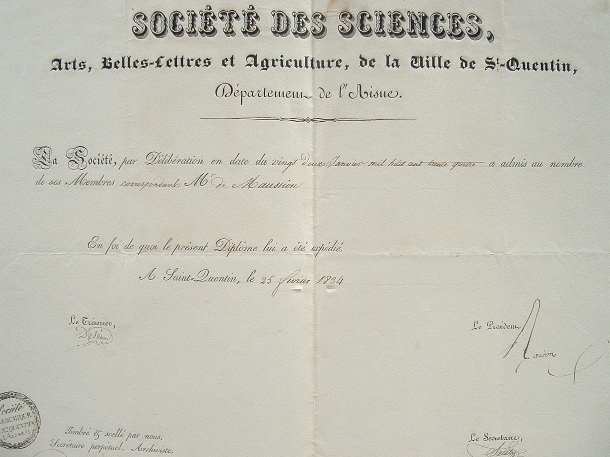 SOCIÉTÉ DES SCIENCES,
Arts, Belles-Lettres et Agriculture, de la Ville de St-Quentin,
Département de l'Aisne.
La Société, par Délibération en date du vingt deux Janvier mil huit cent trente quatre a admis au nombre
de ses Membres correspondants Mr de Maussion
En foi de quoi le présent Diplôme lui a été expédié.
A Saint-Quentin, le 25 février 1834
Le Trésorier,
Le Président
Société
Timbré & scellé par nous,
Secrétaire perpétuel, Archiviste.
Le Secrétaire,